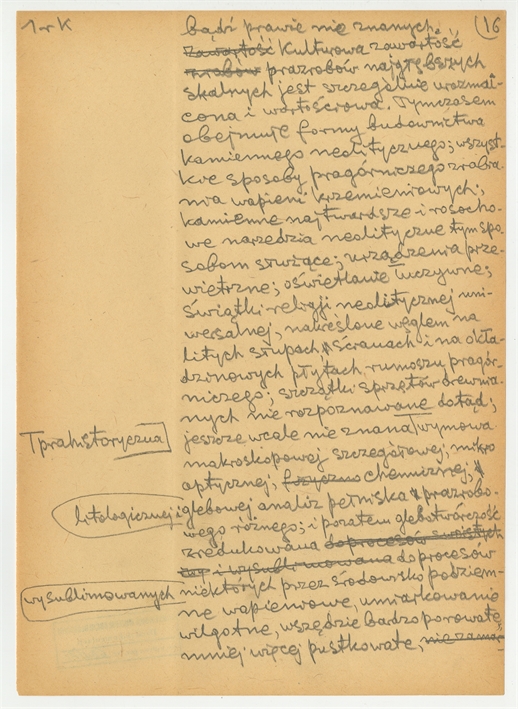 1rK
(16
bądź prawie nie znanych.
zawartość Kulturowa zawartość
zrobów prazrobów najgłębszych
skalnych jest szczególnie urozmai-
cona i wartościowa. Tymczasem
obejmuje formy budownictwa
kamiennego neolitycznego; wszyst-
kie sposoby pragórniczego zrabia-
nia wapieni krzemieniowych;
kamienne najtwardsze i rosocho-
we narzędzia neolityczne tym spo
sobom służące; urządzenia prze-
wietrzne; oświetlanie łuczywne;
świątki religji neolitycznej uni-
wersalnej, nakreślone węglem na
litych słupach, ścianach i na okła-
dzinowych płytach rumoszu pragór-
niczego; szczątki sprzętów drewnia-
nych nie rozpoznawane dotąd;
prahistoryczna
jeszcze wcale nie znana wymowa
makroskopowej szczegółowej, mikro
optycznej, fizyczno chemicznej,
litologicznej i glebowej analiz petniska prazrobo-
wego różnego; i pozatem glebotwórczość
zredukowana do procesów swoistych
i wysublimowana do procesów
wysublimowanych
niektórych przez środowisko podziem-
ne wapieniowe, umiarkowanie
wilgotne, wszędzie bardzo porowate,
mniej więcej pustkowate,